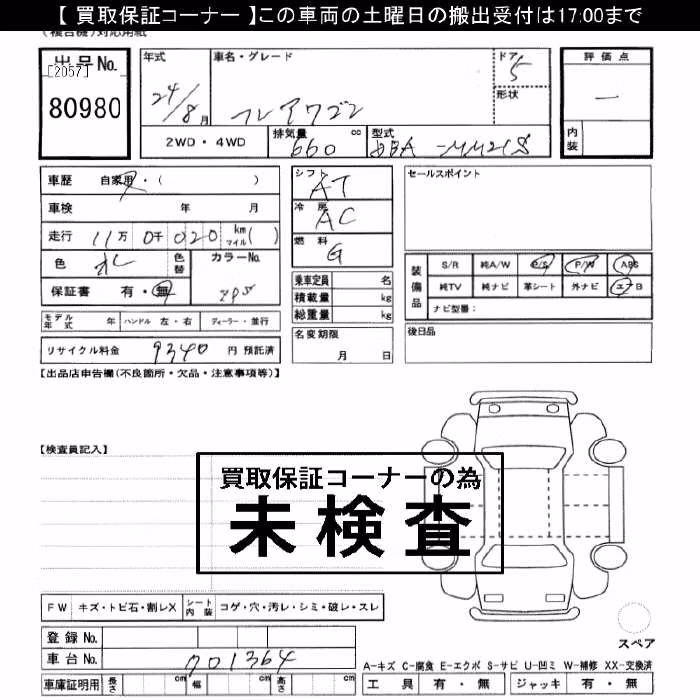 【 買取保証コーナー 】この車両の土曜日の搬出受付は17:00まで
(複合機)対応用紙
出品No.
[2057]
80980
年式
24/8月
車名・グレード
フレアワゴン
ドア
5
形状
評価点
―
内装
2WD・4WD
排気量
660
cc
型式
DBA-MM21S
車歴 自家用・( )
車検 年 月
走行 11万 0千 020 km マイル( )
色
色替
カラーNo.
ZPS
保証書 有・無
モデル年式 年 ハンドル 左・右 ディーラー・並行
リサイクル料金 9340 円 預託済
シフト
AT
冷房
AC
燃料
G
乗車定員 名
積載量 kg
総重量 kg
名変期限
月 日
セールスポイント
装備品
S/R 純A/W P/S P/W ABS
純TV 純ナビ 革シート 外ナビ エアB
ナビ型番:
後日品
【出品店申告欄(不良箇所・欠品・注意事項等)】
【検査員記入】
買取保証コーナーの為
未検査
FW キズ・トビ石・割レX シート内装 コゲ・穴・汚レ・シミ・破レ・スレ
登録No.
車台No. 701364
車庫証明用 長さ cm 幅 cm 高さ cm
スペア
A-キズ C-腐食 E-エクボ S-サビ U-凹ミ W-補修 XX-交換済
工具 有・無 ジャッキ 有・無